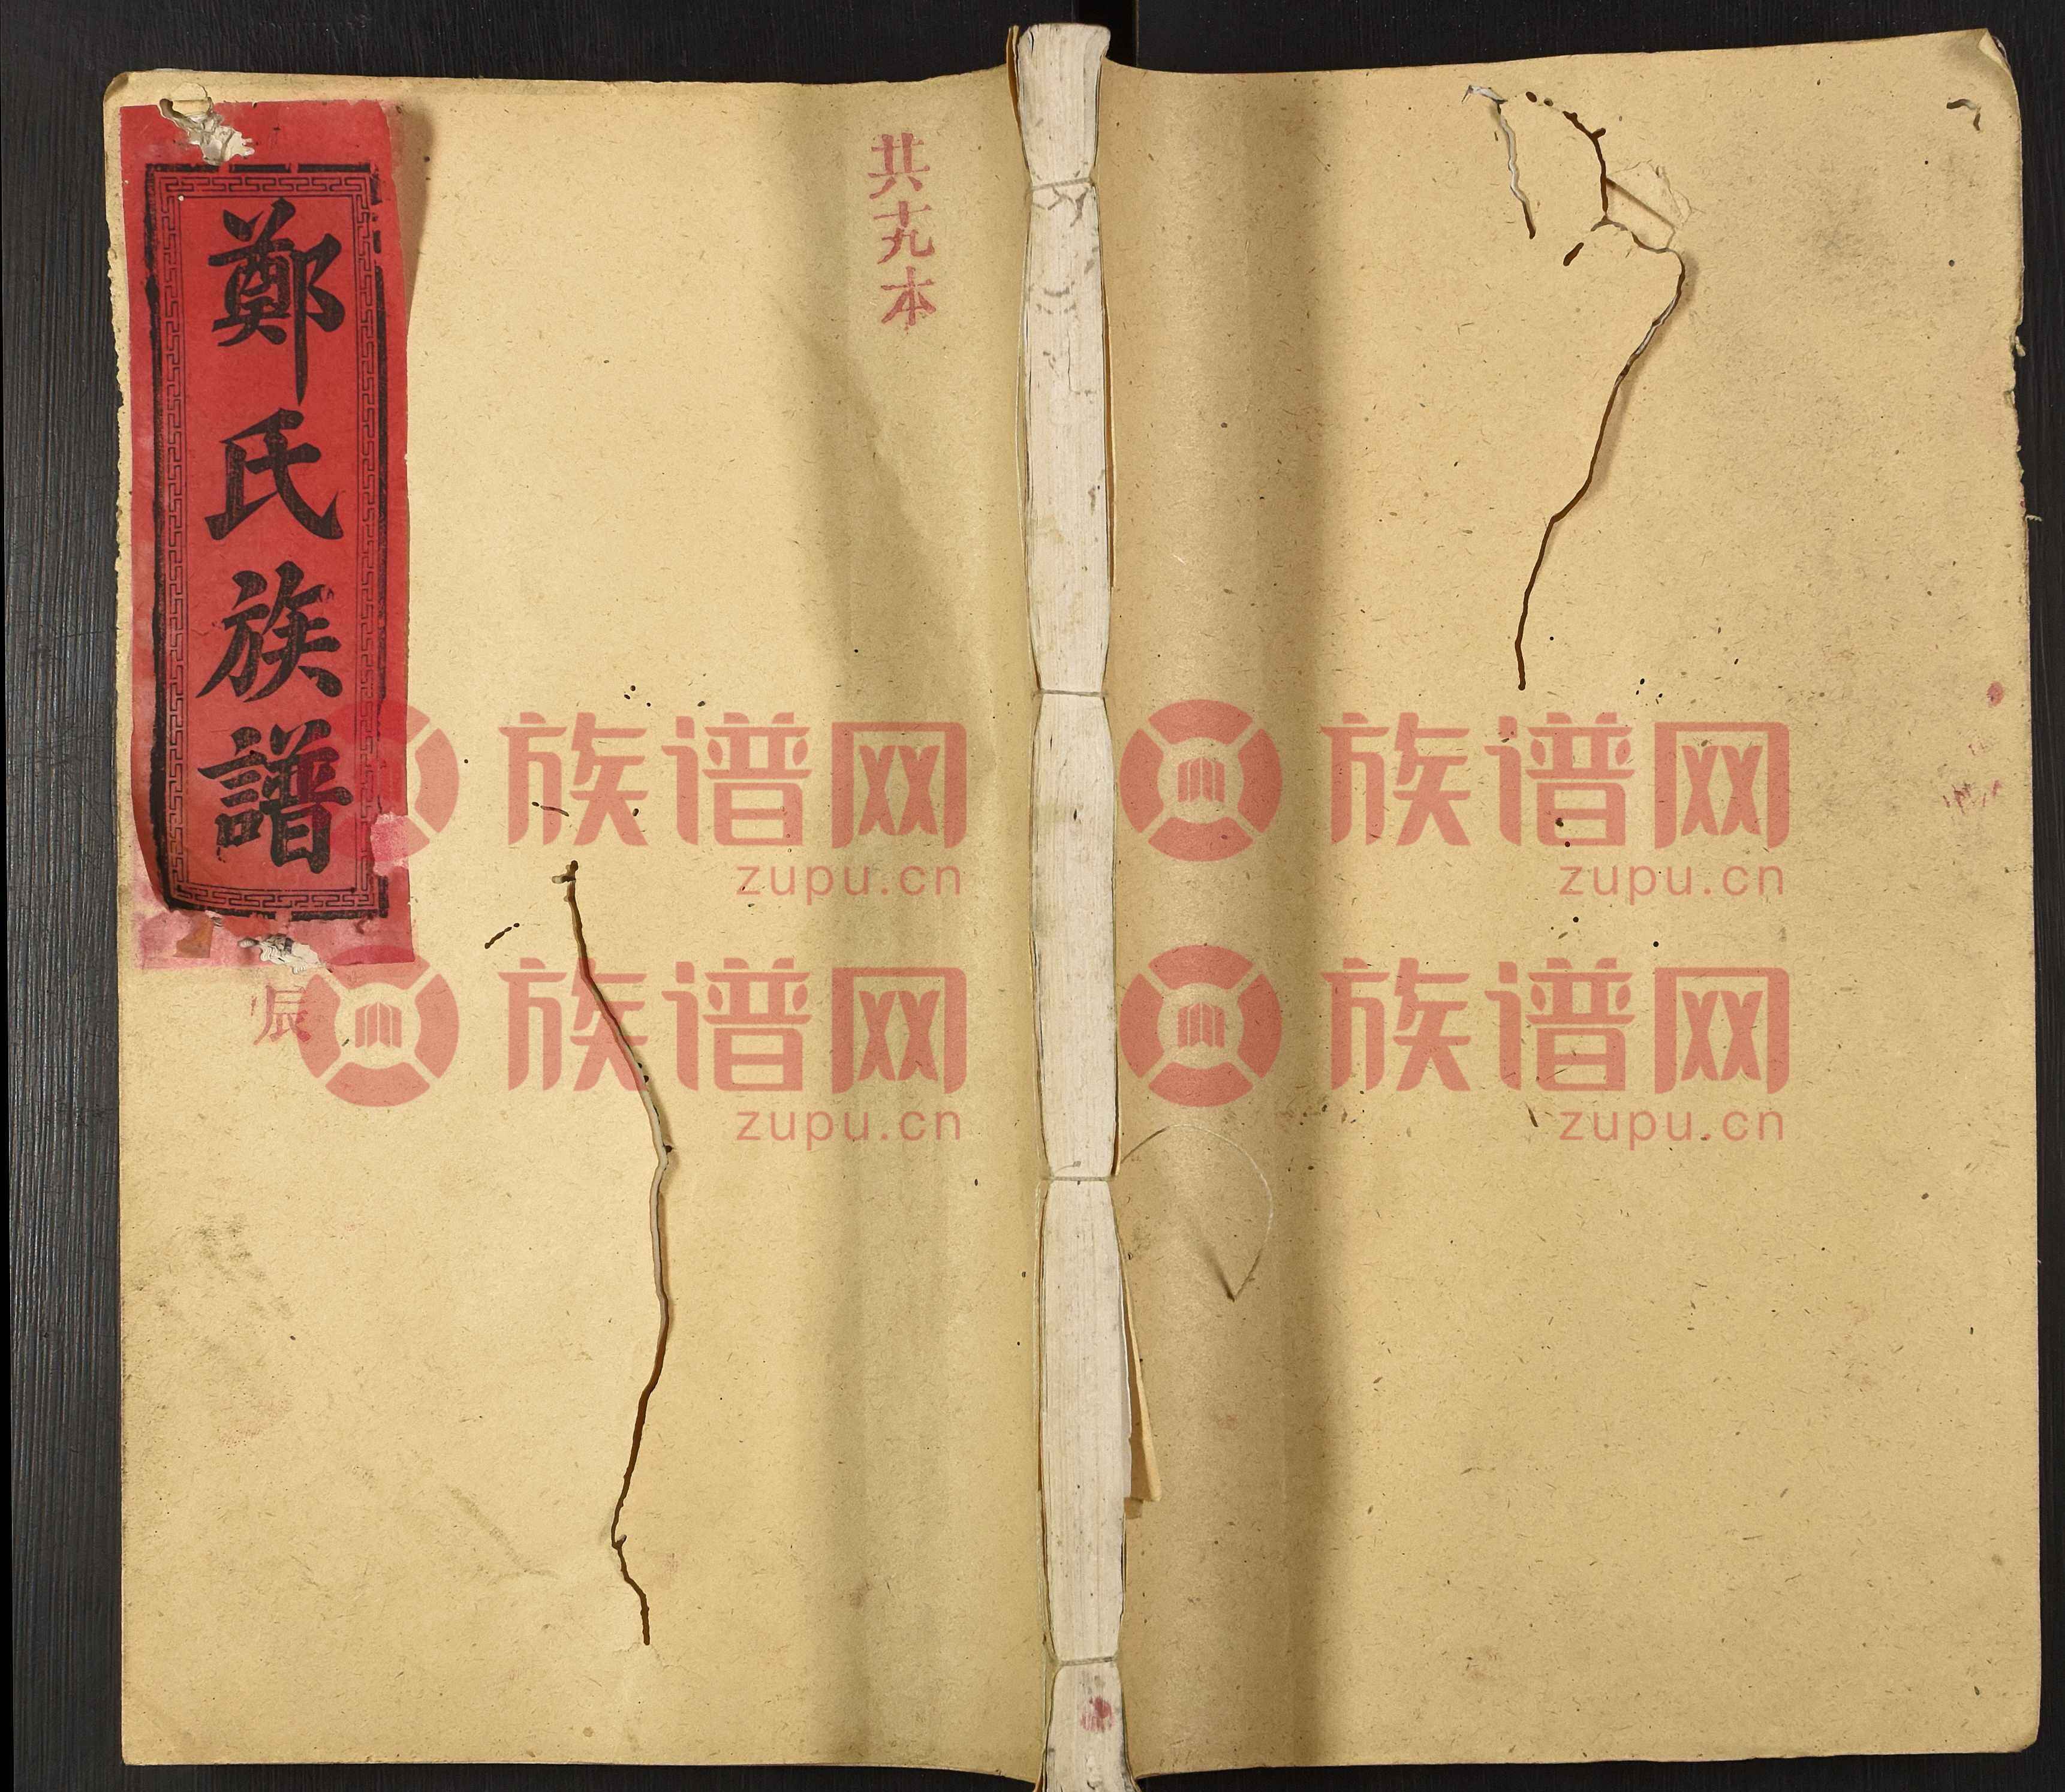 鄭氏族譜
辰
共十九本
族谱网
zupu.cn
族谱网
zupu.cn
族谱网
zupu.cn
族谱网
zupu.cn